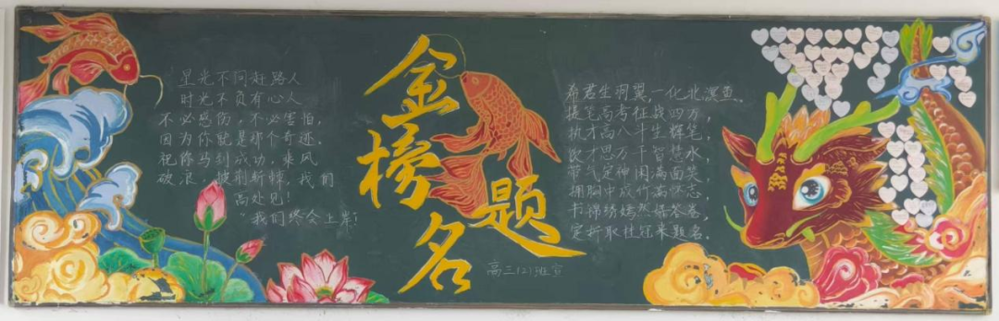 星光不问好路人
时光不负有心人
不必感伤，不必害怕，
因为你就是那个奇迹，
祝你马到成功，乘风
破浪，披荆斩棘，我们
高处见！
我们终会上岸！
金榜题名
高三(2)班宣
希君生羽翼，一化北溟鱼。
提笔高考征战四方，
执才高八斗生辉笔，
饮才思万千智慧水，
带气定神闲满面笑，
拥胸中成竹满怀志
书锦绣嫣然娇答卷，
定折取桂冠来题名。